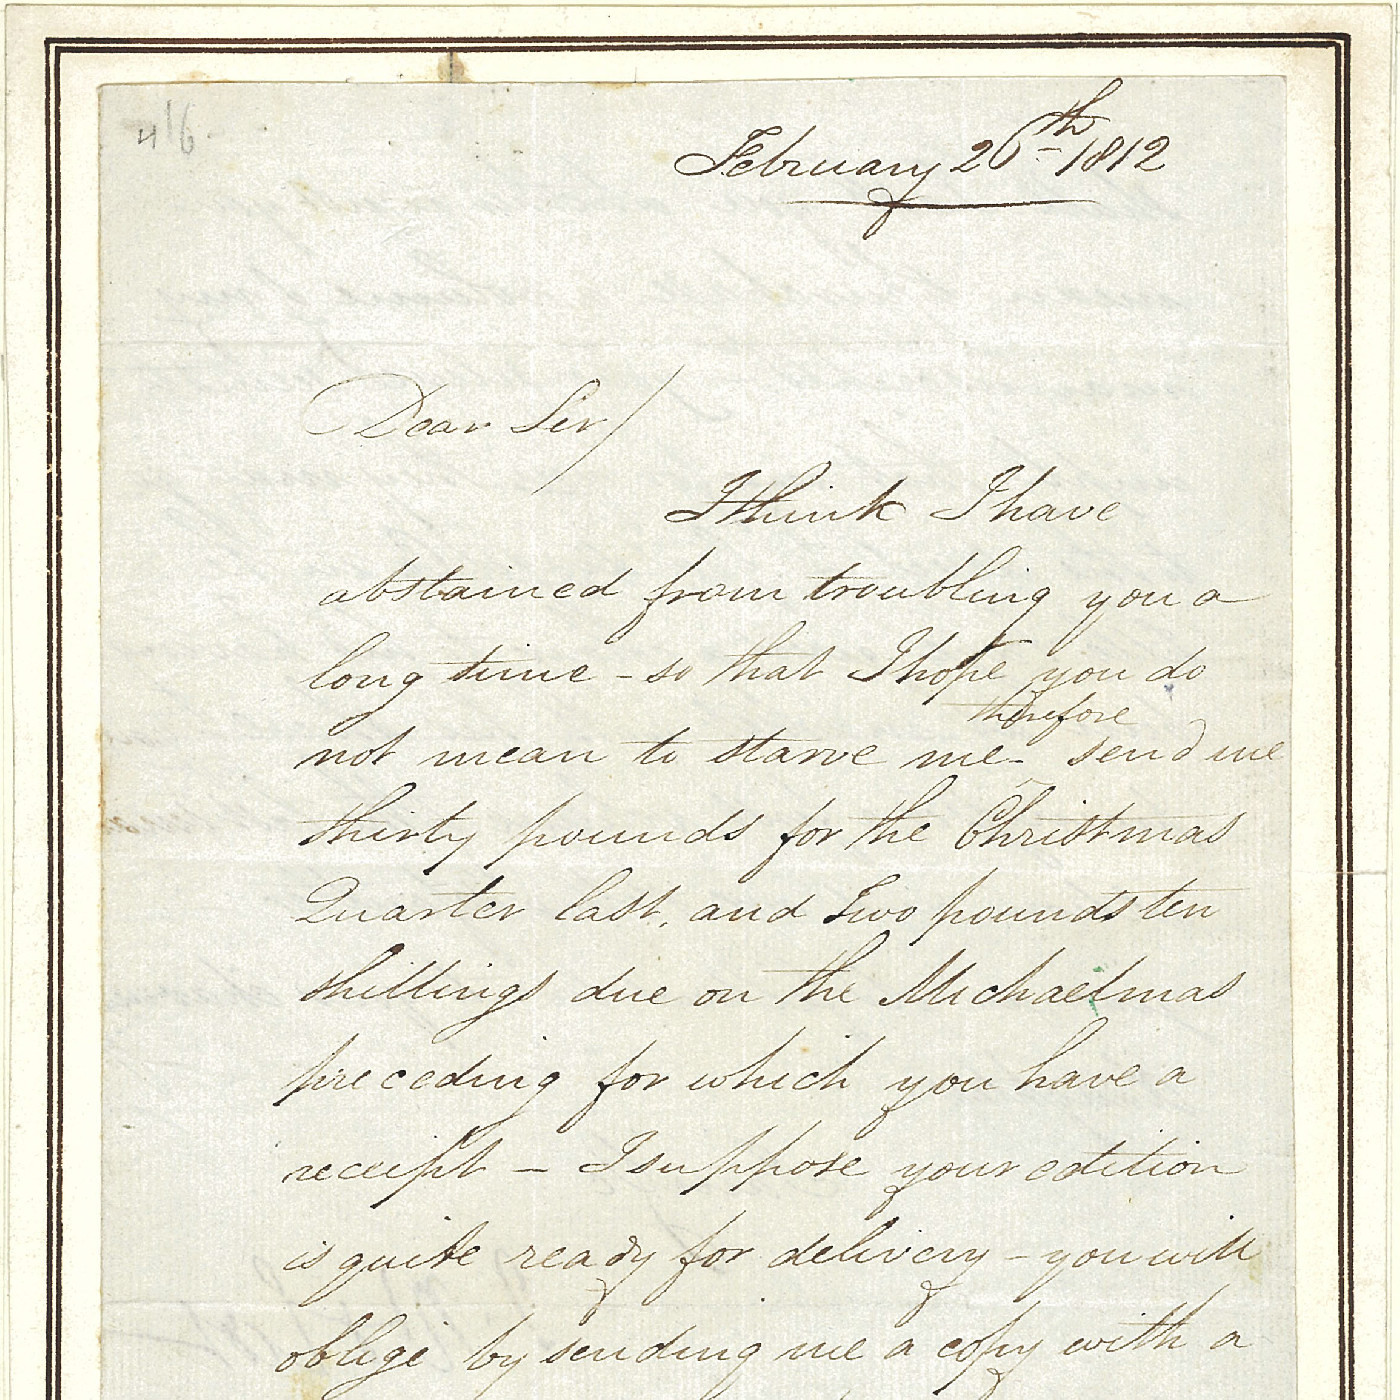 416
February 26th 1812
Dear Sir/
I think I have
abstained from troubling you a
long time - so that I hope you do
therefore
not mean to starve me - send me
thirty pounds for the Christmas
Quarter last, and Two pounds ten
shillings due on the Michaelmas
preceding for which you have a
receipt - I suppose your edition
is quite ready for delivery - you will
oblige by sending me a copy with a